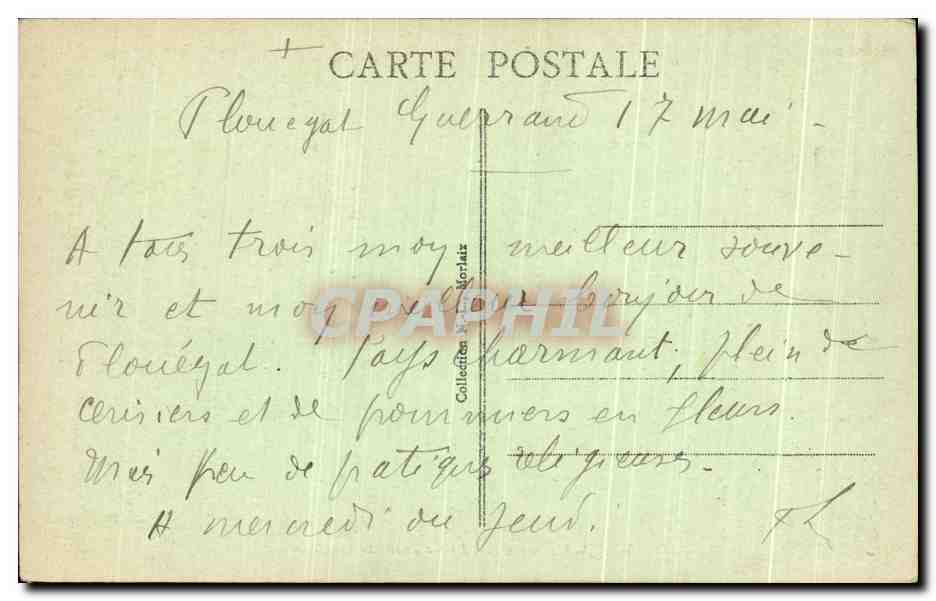 CARTE POSTALE
Plouegat Guerrand 17 mai -
A tous trois mon meilleur souve-
nir et mon meilleur bonjour de
Plouégat. Pays charmant, plein de
cerisiers et de pommiers en fleurs.
Mais peu de pratiques religieuses.
A mercredi ou jeudi.
Collection N.-L., Morlaix
CPAPHIL